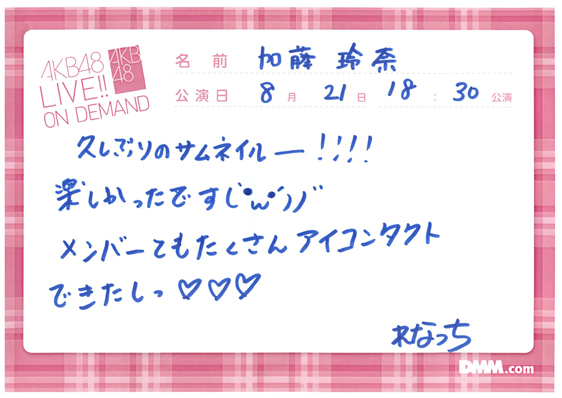 AKB48
LIVE!!
ON DEMAND
AKB
48
名前 加藤 玲奈
公演日 8月 21日 18:30 公演
久しぶりのサムネイルー!!!!
楽しかったです(•̀ω•́)ノ"
メンバーてもたくさんアイコンタクト
できたしっ♡♡♡
れなっち
DMM.com